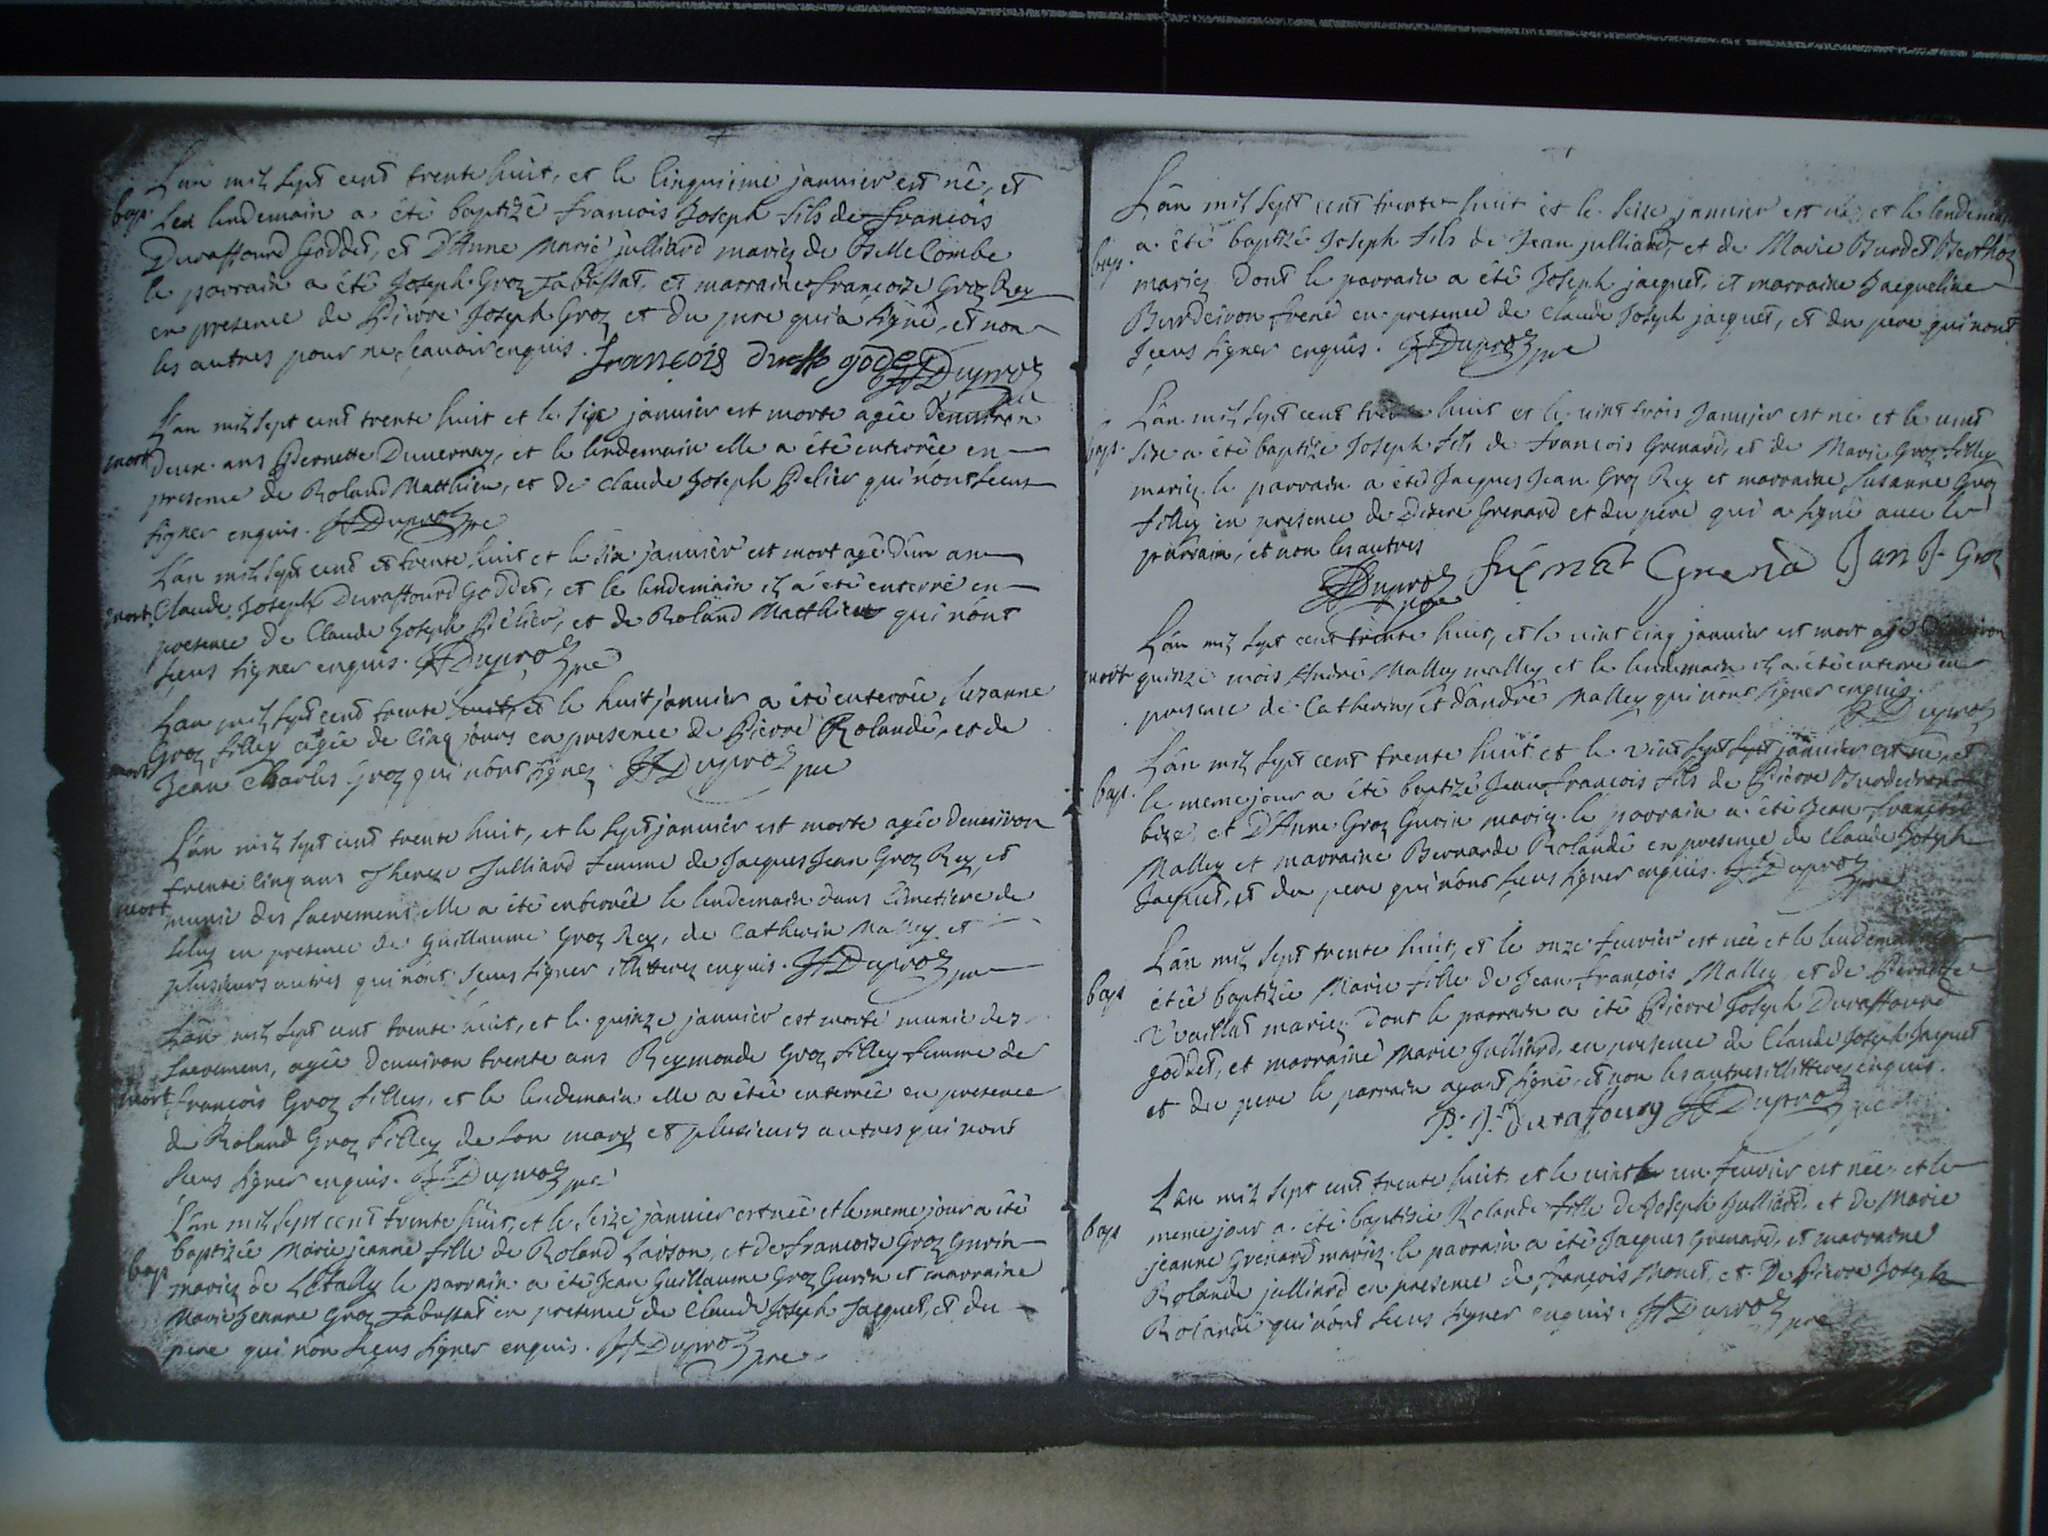 bap.
L'an mil sept cent trente huit, et le cinquieme janvier est né, et
le lendemain a été baptizé francois Joseph fils de francois
Duraffourd Goddet, et D'Anne Marie julliard mariez de BelleCombe
le parrain a été Joseph Groz Jabussat, et marraine francoize Groz Rey
en presence de Pierre Joseph Groz et du pere qui a signé, et non
les autres pour ne scavoir enquis. francois duraff godet JfDuproz
mort
L'an mil sept cent trente huit et le six janvier est morte agée d'environ
deux ans Pernette Duvernay, et le lendemain elle a été enterrée en
presence de Roland Matthieu, et de claude Joseph Pelier qui n'ont sceus
signer enquis. JfDuproz pre
L'an mil sept cent et trente huit et le six janvier est mort agé d'un an
mort Claude Joseph Duraffourd Goddet, et le lendemain il a été enterré en
presence de Claude Joseph Pelier, et de Roland Matthieu qui n'ont
sceus signer enquis. JfDuproz pre
L'an mil sept cent trente huit, et le huit janvier a été enterrée Suzanne
Groz filley agée de cinq jours en presence de Pierre Rolandé, et de
mort
Jean Charles Groz qui n'ont signez. JfDuproz pre
L'an mil sept cent trente huit, et le sept janvier est morte agée d'environ
trente cinq ans Thereze Julliard femme de Jacques Jean Groz Rey, et
mort
munie des sacremens elle a été enterrée le lendemain dans cimetiere de
en presence de Guillaume Groz Rey, de Catherin Malley et
plusieurs autres qui n'ont sceus signer illitterez enquis. JfDuproz pre
L'an mil sept cent trente huit, et le quinze janvier est morte munie des
sacremens, agée d'environ trente ans Reymonde Groz filley femme de
mort francois Groz filley, et le lendemain elle a étée enterrée en presence
de Roland Groz filley de son mary et plusieurs autres qui n'ont
sceus signer enquis. JfDuproz pre
L'an mil sept cent trente huit, et le seize janvier est née et le meme jour a été
baptizée Marie jeanne fille de Roland Larson, et de francoise Groz Gurin
bap
mariez de L'Etally le parrain a été Jean Guillaume Groz Gurin et marraine
Marie Jeanne Groz Jabussat en presence de Claude Joseph Jacquet, et du
pere qui non sceus signer enquis. JfDuproz pre
L'an mil sept cent trente huit et le seize janvier est né et le lendemain
a été baptizé Joseph fils de Jean julliard, et de Marie Burdet Berthoz
bap.
mariez dont le parrain a été Joseph jacquet, et marraine Jacqueline
Burdeiron frené en presence de claude Joseph jacquet, et du pere qui n'ont
sceus signer enquis. JfDuproz pre
L'an mil sept cent trente huit et le vint trois Janvier est né et le vint
bap. a été baptizé Joseph fils de francois Grenard, et de Marie Groz filley
mariez. le parrain a été Jacques Jean Groz Rey et marraine Susanne Groz
filley en presence de Grenard et du pere qui a signé avec le
parrain, et non les autres
JfDuproz pre Grena Jan J Groz
L'an mil sept cent trente huit, et le vint cinq janvier est mort agé d'environ
mort quinze mois André Malley malley et le lendemain il a été enterré en
presence de Catherin, et d'andré Malley qui n'ont signer enquis.
JfDuproz
L'an mil sept cent trente huit et le vint sept sept janvier est né, et
bap. le meme jour a été baptizé Jean francois fils de Pierre Burdeiron
bize, et D'Anne Groz Gurin mariez. le parrain a été Jean francois
Malley et marraine Bernarde Rolandé en presence de Claude Joseph
Jacquet, et du pere qui n'ont sceus signer enquis. JfDuproz pre
L'an mil sept trente huit, et le onze fevrier est née et le lendemain
bap étée baptizée Marie fille de Jean francois Malley et de Pernette
Vuaillat mariez, dont le parrain a été Pierre Joseph Duraffourd
goddet, et marraine Marie Julliard, en presence de Claude Joseph Jaquet
et du pere le parrain ayant signé, et non les autres illitterez enquis.
P. J. Durafourg JfDuproz pre
L'an mil sept cent trente huit et le vint un fevrier est née et le
bap meme jour a été baptizée Rolande fille de Joseph Julliard, et de Marie
jeanne Grenard mariez. le parrain a été Jacques Grenard, et marraine
Rolande julliard en presence de francois Monet, et De Pierre Joseph
Rolandé qui n'ont sceus signer enquis. JfDuproz pre